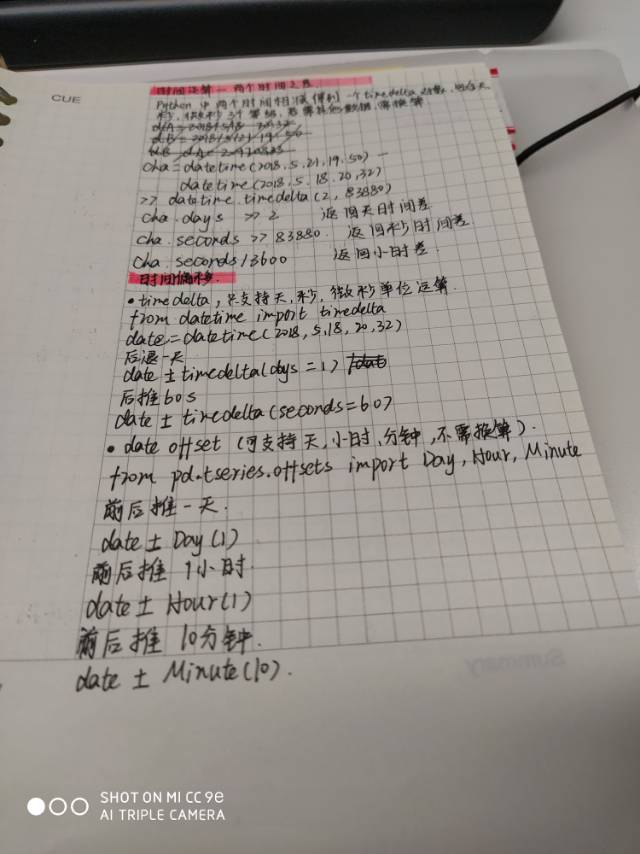 CUE
时间运算一两个时间之差.
Python 中两个时间相减得到一个timedelta对象,包含天,
秒,微秒3个等级,若需其他数据,需换算
cha = datetime(2018.5.21,19.50) —
datetime(2018.5.18.20,32)
>> datetime.timedelta(2,83880)
cha.days >> 2 返回天时间差
cha.seconds >> 83880. 返回秒时间差
cha.seconds/3600 返回小时差.
时间偏移.
• timedelta,只支持天,秒,微秒单位运算.
from datetime import timedelta
date = datetime(2018,5,18,20,32)
后退一天
date ± timedelta(days=1)
后推60s
date ± timedelta(seconds=60)
• date offset (可支持天,小时,分钟,不需换算).
from pd.tseries.offsets import Day,Hour,Minute
前后推一天.
date ± Day(1)
前后推 1小时.
date ± Hour(1)
前后推 10分钟.
date ± Minute(10).
Summary
SHOT ON MI CC 9e
AI TRIPLE CAMERA